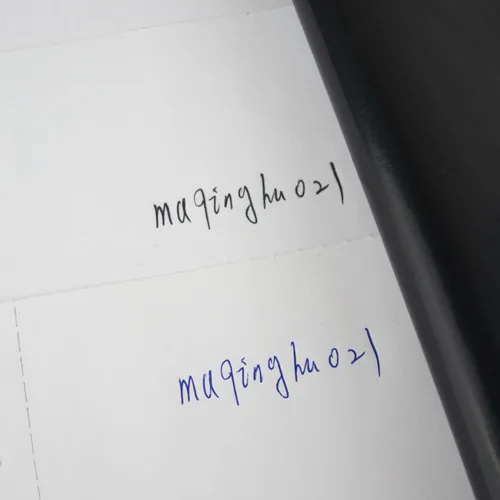 maqinghu021
maqinghu021